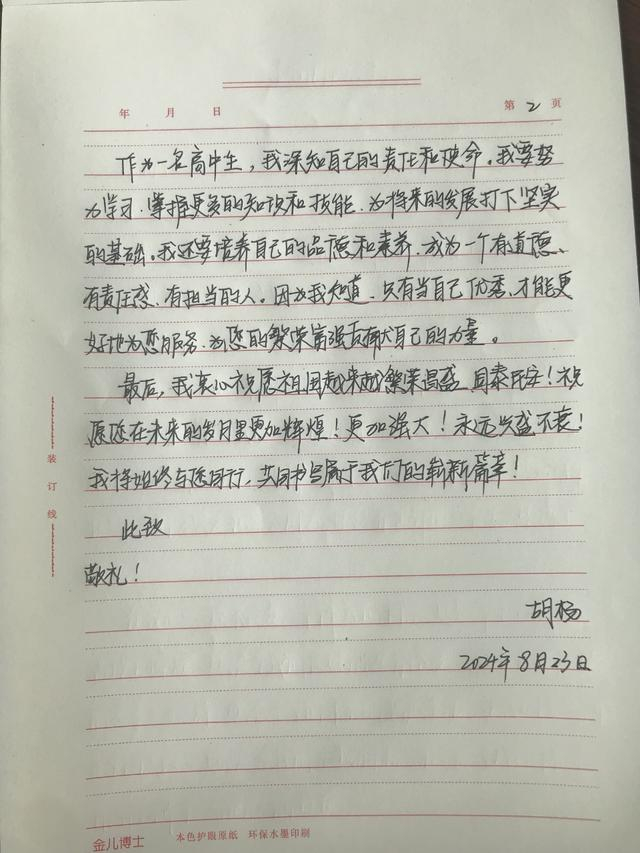 年 月 日 第 2 页
作为一名高中生，我深知自己的责任和使命。我要努
力学习，掌握更多的知识和技能，为将来的发展打下坚实
的基础。我还要培养自己的品德和素养，成为一个有道德、
有责任感、有担当的人。因为我知道，只有当自己优秀，才能更
好地为您服务，为您的繁荣富强贡献自己的力量。
最后，我衷心祝愿祖国越来越繁荣昌盛，国泰民安！祝
愿您在未来的岁月里更加辉煌！更加强大！永远兴盛不衰！
我将始终与您同行，共同书写属于我们的崭新篇章！
此致
敬礼！
胡杨
2024年8月23日
装订线
金儿博士 本色护眼原纸 环保水墨印刷